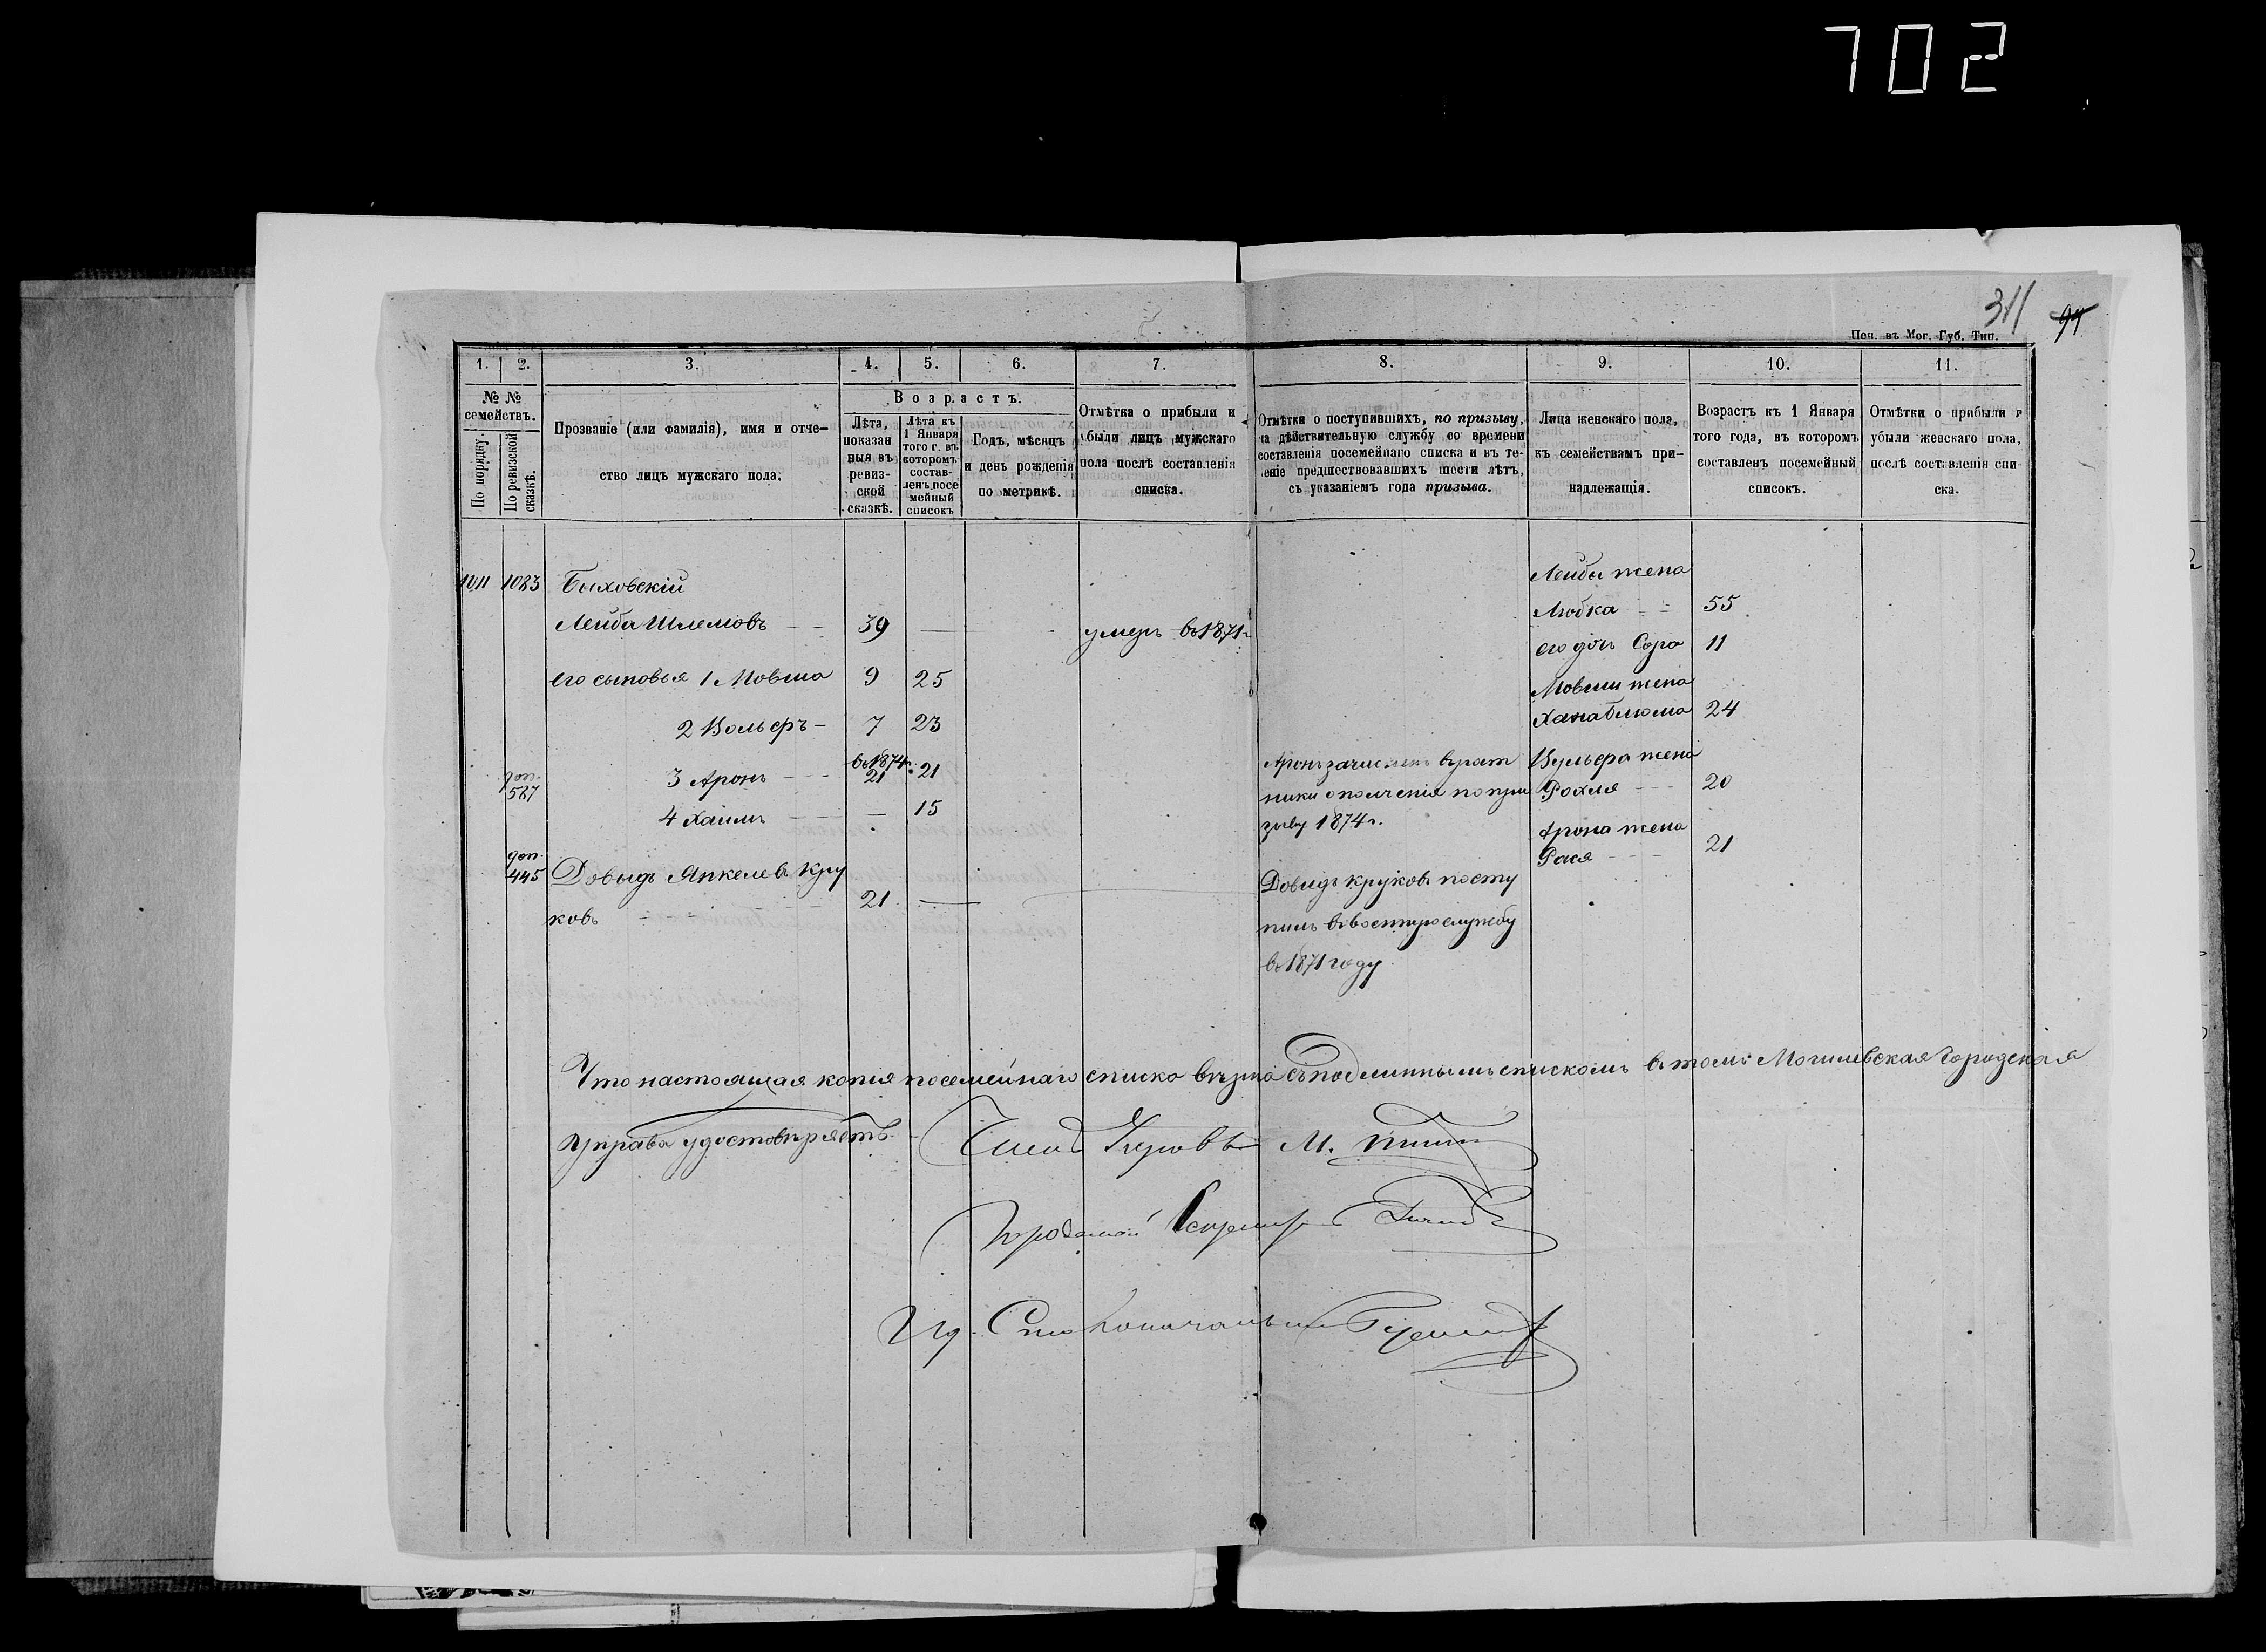 702
311
94
Печ. въ Мог. Губ. Тип.
1. 2. 3. 4. 5. 6. 7. 8. 9. 10. 11.
№ № семействъ.
По порядку.
По ревизской сказкѣ.
Прозваніе (или фамилія), имя и отче-
ство лицъ мужскаго пола.
Возрастъ.
Лѣта,
показан
ныя въ
ревиз-
ской
сказкѣ.
Лѣта къ
1 Января
того г. въ
которомъ
состав-
ленъ посе
мейный
списокъ
Годъ, мѣсяцъ
и день рожденія
по метрикѣ.
Отмѣтка о прибыли и
убыли лицъ мужскаго
пола послѣ составленія
списка.
Отмѣтки о поступившихъ, по призыву,
на дѣйствительную службу со времени
составленія посемейнаго списка и въ те-
ченіе предшествовавшихъ шести лѣтъ,
съ указаніемъ года призыва.
Лица женскаго пола,
къ семействамъ при-
надлежащія.
Возрастъ къ 1 Января
того года, въ которомъ
составленъ посемейный
списокъ.
Отмѣтки о прибыли и
убыли женскаго пола,
послѣ составленія спи-
ска.
1011 1083 Быховскій
Лейба Шлемовъ 39 — умеръ въ 1871 г
его сыновья 1 Мовша 9 25
2 Вольфъ 7 23
доп. 587 3 Аронъ въ 1874 г. 21 21
4 Хаимъ — 15
Аронъ зачисленъ въ рат
ники ополченія по при
зыву 1874 г.
Лейбы жена
Любка 55
его дочь Сора 11
Мовши жена
Хана Блюма 24
Вульфа жена
Рохля 20
Арона жена
Рася 21
доп. 445 Довыдъ Янкелевъ Кру
ковъ 21 —
Довидъ Круковъ посту
пилъ въ военную службу
въ 1871 году
Что настоящая копія посемейнаго списка вѣрна съ подлиннымъ спискомъ въ томъ Могилевская Городская
Управа удостовѣряетъ.
Членъ Управы М.
Городской Секретарь
И д. Столоначальника